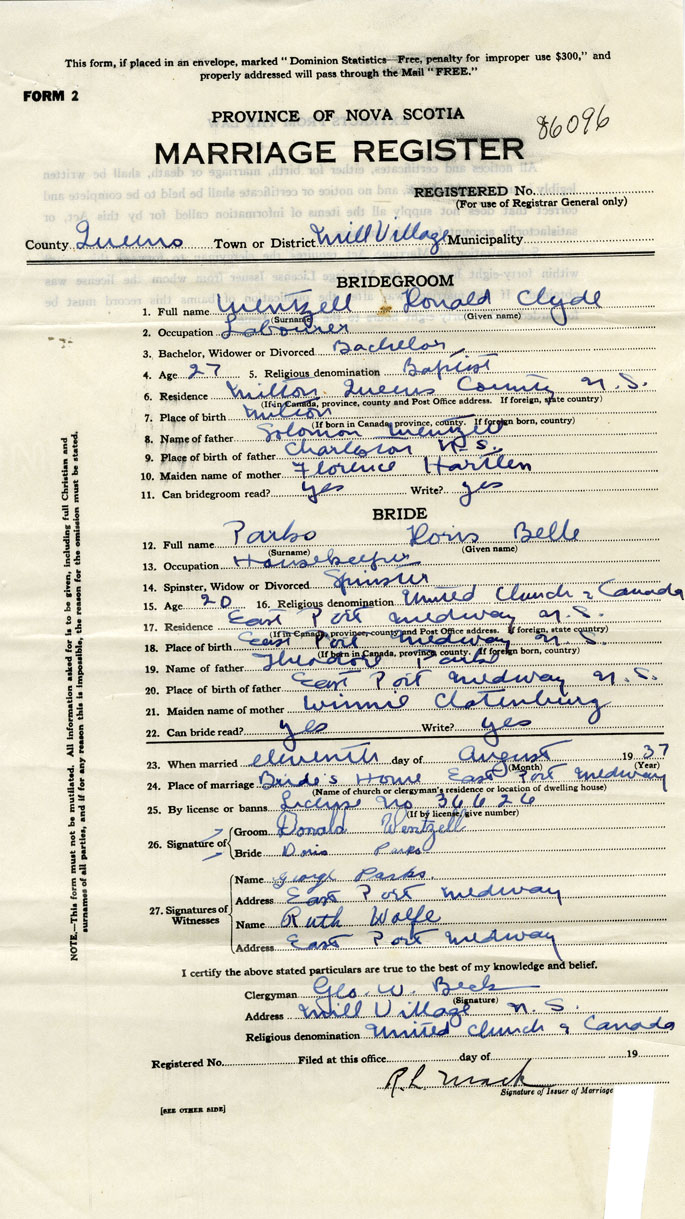 This form, if placed in an envelope, marked "Dominion Statistics—Free, penalty for improper use $300," and
properly addressed will pass through the Mail "FREE."
FORM 2
PROVINCE OF NOVA SCOTIA
86096
MARRIAGE REGISTER
REGISTERED No.
(For use of Registrar General only)
County Queens Town or District Mill Village Municipality
BRIDEGROOM
1. Full name Wentzell Donald Clyde
(Surname) (Given name)
2. Occupation Labourer
3. Bachelor, Widower or Divorced Bachelor
4. Age 27 5. Religious denomination Baptist
6. Residence Milton Queens County N.S.
(If in Canada, province, county and Post Office address. If foreign, state country)
7. Place of birth Milton
(If born in Canada, province, county. If foreign born, country)
8. Name of father Solomon Wentzell
9. Place of birth of father Charleston N.S.
10. Maiden name of mother Florence Hartlen
11. Can bridegroom read? yes Write? yes
BRIDE
12. Full name Parks Doris Belle
(Surname) (Given name)
13. Occupation Housekeeper
14. Spinster, Widow or Divorced Spinster
15. Age 20 16. Religious denomination United Church of Canada
17. Residence East Port Medway N.S.
(If in Canada, province, county and Post Office address. If foreign, state country)
18. Place of birth East Port Medway N.S.
(If born in Canada, province, county. If foreign born, country)
19. Name of father Theodore Parks
20. Place of birth of father East Port Medway N.S.
21. Maiden name of mother Winnie Clatenburg
22. Can bride read? yes Write? yes
23. When married eleventh day of August 1937
(Month) (Year)
24. Place of marriage Bride's Home East Port Medway
(Name of church or clergyman's residence or location of dwelling house)
25. By license or banns No 36626
(If by license, give number)
26. Signature of
Groom Donald Wentzell
Bride Doris Parks
27. Signatures of Witnesses
Name George Parks.
Address East Port Medway
Name Ruth Wolfe
Address East Port Medway
I certify the above stated particulars are true to the best of my knowledge and belief.
Clergyman Geo. W. Beck
(Signature)
Address Mill Village N.S.
Religious denomination United Church of Canada
Registered No. Filed at this office day of 19
R. L. Mack
Signature of Issuer of Marriage
[SEE OTHER SIDE]
NOTE.—This form must not be mutilated. All information asked for is to be given, including full Christian and
surnames of all parties, and if for any reason this is impossible, the reason for the omission must be stated.